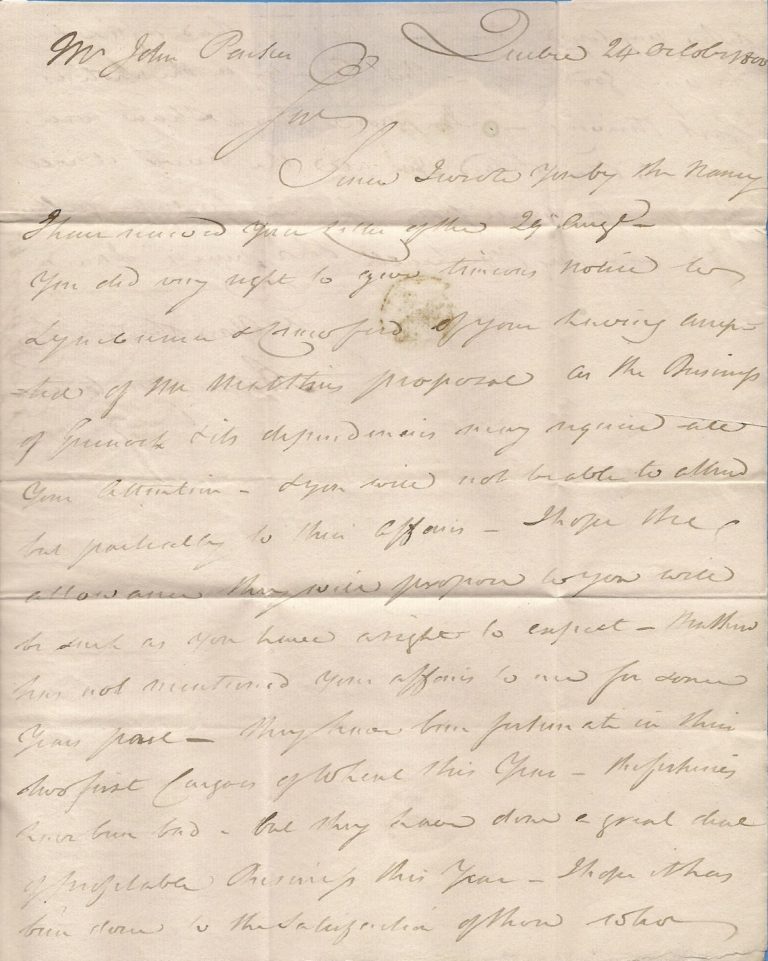 Mr John Parker Quebec 24 October 1800
Sir
Since I wrote you by the Nancy
I have received your Letter of the 29 Augt –
You did very right to give timeous notice to
Lyneburner & Crawford of your having accep-
-ted of Mr Matthew's proposal as the Business
of Greenock & its dependencies may require all
your attention – & you will not be able to attend
but partially to their affairs – I hope the
allowance they will propose to you will
be such as you have a right to expect – Mathew
has not mentioned your affairs to me for some
years past – they have been fortunate in their
two first Cargoes of Wheat this Year – the fisheries
have been bad – but they have done a great deal
of profitable Business this Year – I hope it has
been done to the Satisfaction of those who